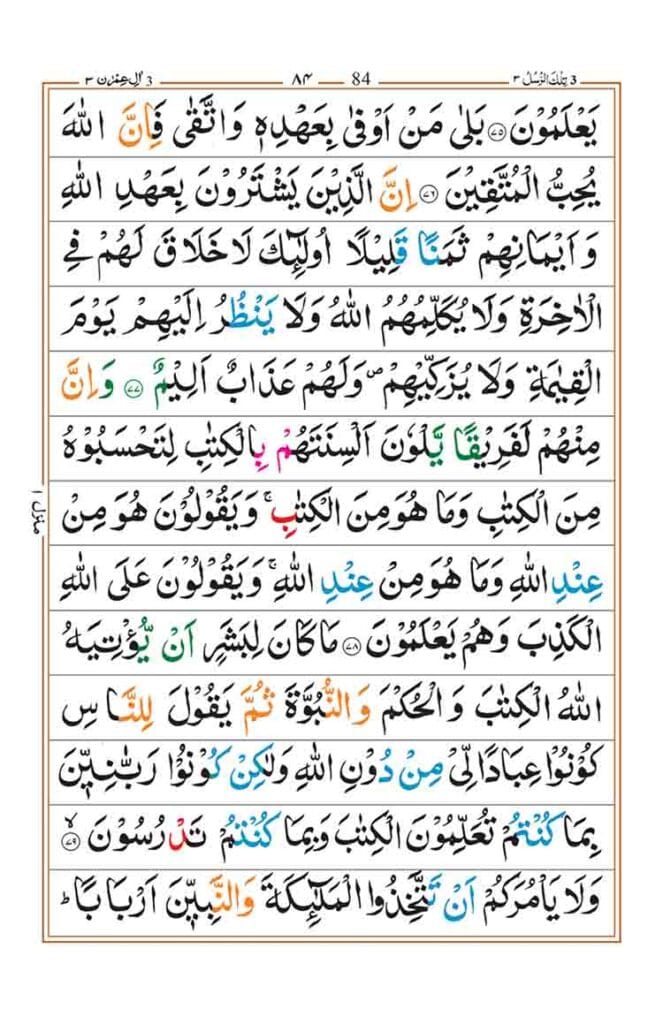 3 تِلْكَ الرُّسُلُ ٣ 84 ٨٤ 3 اٰلِ عِمْرٰن ٣
يَعْلَمُوْنَ ﴿٧٥﴾ بَلٰى مَنْ اَوْفٰى بِعَهْدِهٖ وَاتَّقٰى فَاِنَّ اللّٰهَ
يُحِبُّ الْمُتَّقِيْنَ ﴿٧٦﴾ اِنَّ الَّذِيْنَ يَشْتَرُوْنَ بِعَهْدِ اللّٰهِ
وَ اَيْمَانِهِمْ ثَمَنًا قَلِيْلًا اُولٰٓئِكَ لَا خَلَاقَ لَهُمْ فِي
الْاٰخِرَةِ وَلَا يُكَلِّمُهُمُ اللّٰهُ وَلَا يَنْظُرُ اِلَيْهِمْ يَوْمَ
الْقِيٰمَةِ وَلَا يُزَكِّيْهِمْ ۖ وَلَهُمْ عَذَابٌ اَلِيْمٌ ﴿٧٧﴾ وَاِنَّ
مِنْهُمْ لَفَرِيْقًا يَّلْوٗنَ اَلْسِنَتَهُمْ بِالْكِتٰبِ لِتَحْسَبُوْهُ
مِنَ الْكِتٰبِ وَمَا هُوَ مِنَ الْكِتٰبِ ۚ وَيَقُوْلُوْنَ هُوَ مِنْ
عِنْدِ اللّٰهِ وَمَا هُوَ مِنْ عِنْدِ اللّٰهِ ۚ وَيَقُوْلُوْنَ عَلَى اللّٰهِ
الْكَذِبَ وَهُمْ يَعْلَمُوْنَ ﴿٧٨﴾ مَا كَانَ لِبَشَرٍ اَنْ يُّؤْتِيَهُ
اللّٰهُ الْكِتٰبَ وَ الْحُكْمَ وَالنُّبُوَّةَ ثُمَّ يَقُوْلَ لِلنَّاسِ
كُوْنُوْا عِبَادًا لِّيْ مِنْ دُوْنِ اللّٰهِ وَلٰكِنْ كُوْنُوْا رَبّٰنِيّٖنَ
بِمَا كُنْتُمْ تُعَلِّمُوْنَ الْكِتٰبَ وَبِمَا كُنْتُمْ تَدْرُسُوْنَ ۙ﴿٧٩﴾
وَلَا يَاْمُرَكُمْ اَنْ تَتَّخِذُوا الْمَلٰٓئِكَةَ وَالنَّبِيّٖنَ اَرْبَابًا ؕ
منزل ١